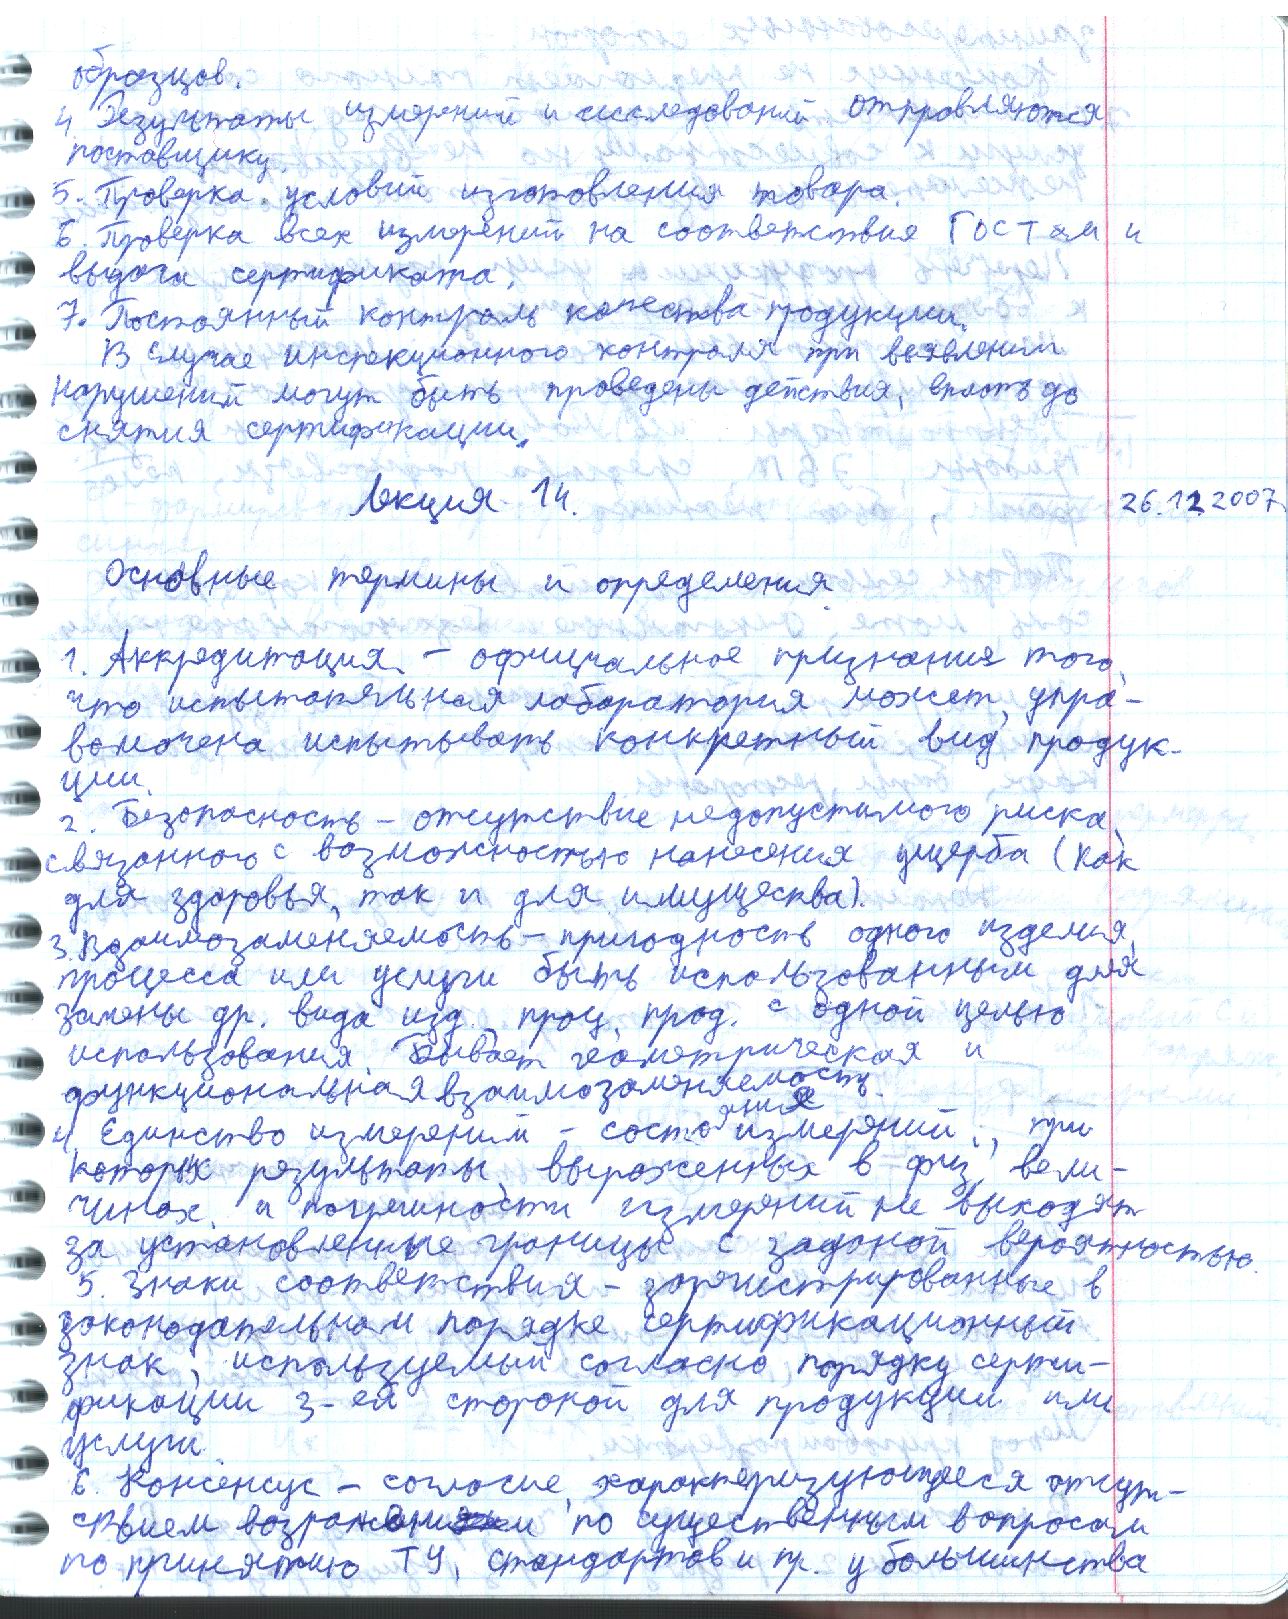 образцов.
4. Результаты измерений и исследований отправляются
поставщику.
5. Проверка условий изготовления товара.
6. Проверка всех измерений на соответствие ГОСТам и
выдача сертификата.
7. Постоянный контроль качества продукции.
В случае инспекционного контроля при выявлении
нарушений могут быть проведены действия, вплоть до
снятия сертификации.
Лекция 14.
26.12.2007
Основные термины и определения.
1. Аккредитация – официальное признание того,
что испытательная лаборатория может, упра-
вомочена испытывать конкретный вид продук-
ции.
2. Безопасность – отсутствие недопустимого риска,
связанного с возможностью нанесения ущерба (как
для здоровья, так и для имущества).
3. Взаимозаменяемость – пригодность одного изделия,
процесса или услуги быть использованным для
замены др. вида изд., проц., прод. с одной целью
использования. Бывает геометрическая и
функциональная взаимозаменяемость.
4. Единство измерений – состояние измерений, при
которых результаты, выраженных в физ. вели-
чинах, и погрешности измерений не выходят
за установленные границы с заданой вероятностью.
5. Знаки соответствия – зарегистрированные в
законодательном порядке сертификационный
знак, используемый согласно порядку серти-
фикации 3-ей стороной для продукции или
услуги.
6. Консенсус – согласие, характеризующееся отсут-
ствием возражений по существенным вопросам
по принятию ТУ, стандартов и пр. у большинства